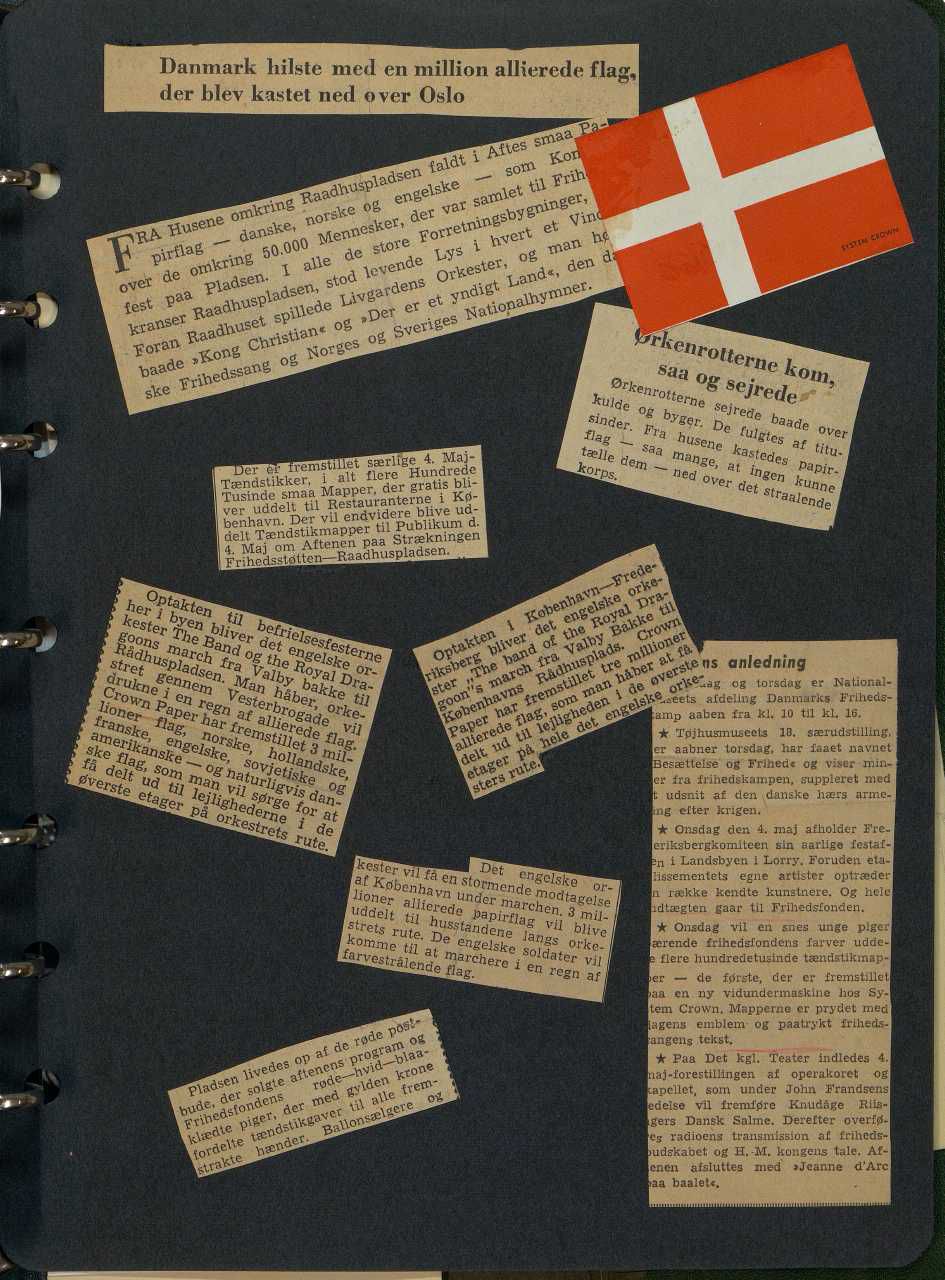 Danmark hilste med en million allierede flag,
der blev kastet ned over Oslo
FRA Husene omkring Raadhuspladsen faldt i Aftes smaa Pa-
pirflag — danske, norske og engelske — som Kon
over de omkring 50.000 Mennesker, der var samlet til Frih
fest paa Pladsen. I alle de store Forretningsbygninger,
kranser Raadhuspladsen, stod levende Lys i hvert et Vind
Foran Raadhuset spillede Livgardens Orkester, og man hø
baade »Kong Christian« og »Der er et yndigt Land«, den da
ske Frihedssang og Norges og Sveriges Nationalhymner.
SYSTEM CROWN
Ørkenrotterne kom,
saa og sejrede
Ørkenrotterne sejrede baade over
kulde og byger. De fulgtes af titu-
sinder. Fra husene kastedes papir-
flag — saa mange, at ingen kunne
tælle dem — ned over det straalende
korps.
Der er fremstillet særlige 4. Maj-
Tændstikker, i alt flere Hundrede
Tusinde smaa Mapper, der gratis bli-
ver uddelt til Restauranterne i Kø-
benhavn. Der vil endvidere blive ud-
delt Tændstikmapper til Publikum d.
4. Maj om Aftenen paa Strækningen
Frihedsstøtten—Raadhuspladsen.
Optakten til befrielsesfesterne
her i byen bliver det engelske or-
kester The Band og the Royal Dra-
goons march fra Valby bakke til
Rådhuspladsen. Man håber, orke-
stret gennem Vesterbrogade vil
drukne i en regn af allierede flag.
Crown Paper har fremstillet 3 mil-
lioner flag, norske, hollandske,
franske, engelske, sovjetiske og
amerikanske — og naturligvis dan-
ske flag, som man vil sørge for at
få delt ud til lejlighederne i de
øverste etager på orkestrets rute.
Optakten i København—Frede-
riksberg bliver det engelske orke-
ster „The band of the Royal Dra-
goon"s march fra Valby Bakke til
Københavns Rådhusplads. Crown
Paper har fremstillet tre millioner
allierede flag, som man håber at få
delt ud til lejligheden i de øverste
etager på hele det engelske orke-
sters rute.
ns anledning
dag og torsdag er National-
seets afdeling Danmarks Friheds-
amp aaben fra kl. 10 til kl. 16.
★ Tøjhusmuseets 18. særudstilling,
er aabner torsdag, har faaet navnet
Besættelse og Frihed« og viser min-
er fra frihedskampen, suppleret med
t udsnit af den danske hærs arme-
ng efter krigen.
★ Onsdag den 4. maj afholder Fre-
eriksbergkomiteen sin aarlige festaf-
en i Landsbyen i Lorry. Foruden eta-
lissementets egne artister optræder
n række kendte kunstnere. Og hele
ndtægten gaar til Frihedsfonden.
★ Onsdag vil en snes unge piger
ærende frihedsfondens farver udde-
e flere hundredetusinde tændstikmap-
er — de første, der er fremstillet
paa en ny vidundermaskine hos Sy-
tem Crown. Mapperne er prydet med
lagens emblem og paatrykt friheds-
angens tekst.
★ Paa Det kgl. Teater indledes 4.
maj-forestillingen af operakoret og
kapellet, som under John Frandsens
edelse vil fremføre Knudåge Riis-
gers Dansk Salme. Derefter overfø-
es radioens transmission af friheds-
budskabet og H. M. kongens tale. Af-
enen afsluttes med »Jeanne d'Arc
paa baalet«.
Det engelske or-
kester vil få en stormende modtagelse
af København under marchen. 3 mil-
lioner allierede papirflag vil blive
uddelt til husstandene langs orke-
strets rute. De engelske soldater vil
komme til at marchere i en regn af
farvestrålende flag.
Pladsen livedes op af de røde post-
bude, der solgte aftenens program og
Frihedsfondens røde—hvid—blaa-
klædte piger, der med gylden krone
fordelte tændstikgaver til alle frem-
strakte hænder. Ballonsælgere og